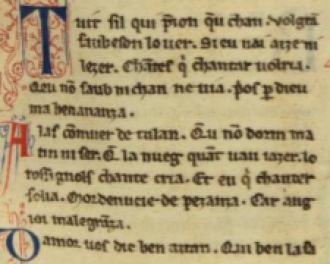 Tuit sil qui prion qu chan uolgra
saubeson lo uer. Si eu nai aize ni
lezer. Chantes qi chantar uolria.
Qeu nõ saub ni chan ne uia. pos per dieu
ma benananza.
Alas cõmuer de talan. Qeu nõ dorm ma
tin ni ser. Qe la nueg quãt uau iazer. lo
rossignols chante cria. Et eu qi chantar
solia. Mor denueie de pezanza. Car aug
ioi
Damor uos dic ben aitan. Qui ben la